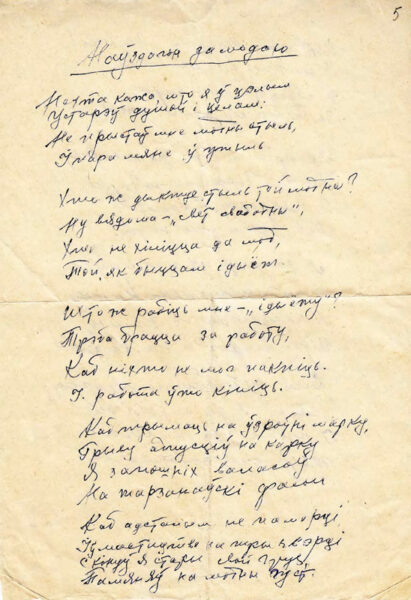 5
Наўздагон за модаю
Нехта кажа, што я ў цэлым
Устарэў душой і целам:
Не прыстаў мне модны стыль,
І пара мяне ў утыль.
Хто ж дыктуе стыль той модны?
Ну вядома - „свет свабодны",
Хто не хіліцца да мод,
Той, як быццам ідыёт.
Што ж рабіць мне - „ідыёту"?
Трэба брацца за работу,
Каб ніхто не мог пакпіць.
І работа ўжо кіпіць.
Каб трымаць на ўзроўні марку,
Грыву адпусціў на карку
Я з валасоў
На тарзанаўскі фасон
Каб адстаўшым не памерці
на
С канца я стары свой
Памяняў на модны